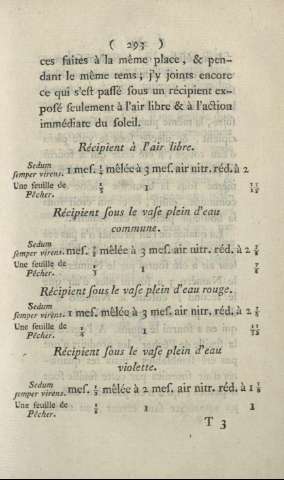 ( 293 )
ces faites à la même place, & pen-
dant le même tems ; j'y joints encore
ce qui s'est passé sous un récipient ex-
posé seulement à l'air libre & à l'action
immédiate du soleil.
Récipient à l'air libre.
Sedum
semper virens. 1 mes. mêlée à 3 mes. air nitr. réd. à 2
Une feuille de
Pêcher. 1
Récipient sous le vase plein d'eau
commune.
Sedum
semper virens. mes. mêlée à 3 mes. air nitr. réd. à 2
Une feuille de
Pêcher. 1
Récipient sous le vase plein d'eau rouge.
Sedum
semper virens. 1 mes. mêlée à 3 mes. air nitr. réd. à 2
Une feuille de
Pêcher. 1
Récipient sous le vase plein d'eau
violette.
Sedum
semper virens. mes. mêlée à 2 mes. air nitr. réd. à 1
Une feuille de
Pêcher. 1 1
T 3